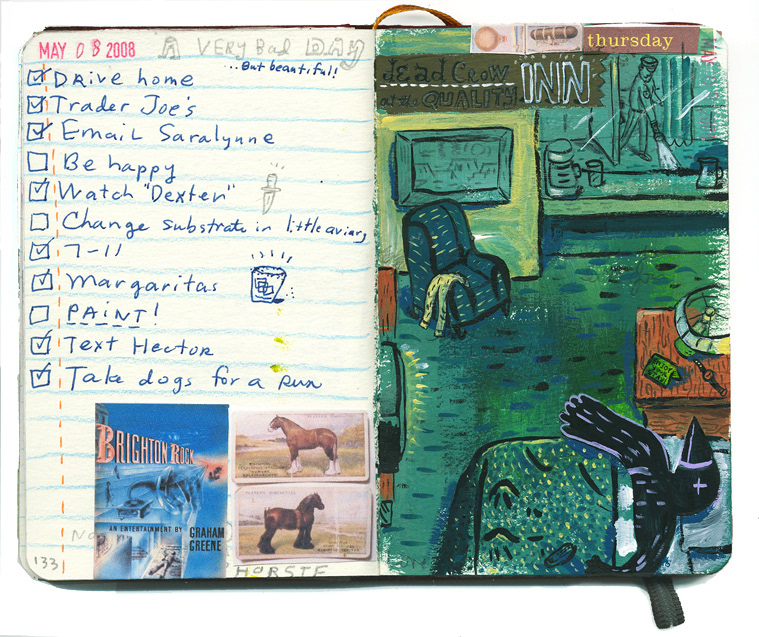 MAY 08 2008
A VERY BAD DAY
...But beautiful!
Drive home
Trader Joe's
Email Saralynne
Be happy
Watch "Dexter"
Change substrate in little aviary
7-11
Margaritas
PAINT!
Text Hector
Take dogs for a run
BRIGHTON ROCK
AN ENTERTAINMENT BY GRAHAM GREENE
HORSIE
133
thursday
dead Crow INN
at the QUALITY